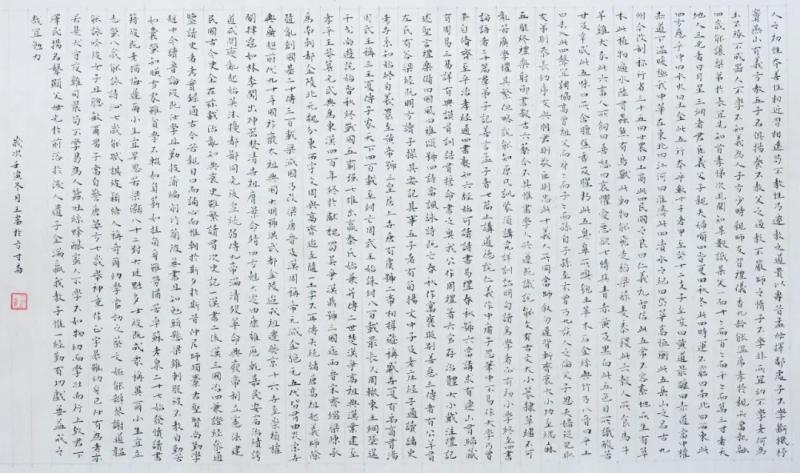 人之初性本善性相近習相遠苟不教性乃遷教之道貴以專昔孟母擇鄰處子不學斷機杼
竇燕山有義方教五子名俱揚養不教父之過教不嚴師之惰子不學非所宜幼不學老何為
玉不琢不成器人不學不知義為人子方少時親師友習禮儀香九齡能溫席孝於親所當執融
四歲能讓梨弟於長宜先知首孝悌次見聞知某數識某文一而十十而百百而千千而萬三才者天
地人三光者日月星三綱者君臣義父子親夫婦順曰春夏曰秋冬此四時運不窮曰南北曰西東此
四方應乎中曰水火木金土此五行本乎數十干者甲至癸十二支子至亥曰黃道日所躔曰赤道當中權
赤道下溫暖極我中華在東北曰江河曰淮濟此四瀆水之紀曰岱華嵩恒衡此五岳山之名古九
州今改制稱行省三十五曰士農曰工商此四民國之良曰仁義禮智信此五常不容紊地所生有草
木此植物遍水陸有蟲魚有鳥獸此動物能飛走稻粱菽麥黍稷此六穀人所食馬牛
羊雞犬豕此六畜人所飼曰喜怒曰哀懼愛惡欲七情俱青赤黃及黑白此五色目所識酸苦
甘及辛鹹此五味口所含膻焦香及腥朽此五臭鼻所嗅匏土革木石金絲與竹乃八音曰平上
曰去入此四聲宜調協高曾祖父而身身而子子而孫自子孫至玄曾乃九族人之倫父子恩夫婦從兄則
友弟則恭長幼序友與朋君則敬臣則忠此十義人所同當師敘勿違背斬齊衰大小功至緦麻
五服終禮樂射御書數古六藝今不具惟書學人共遵既識字講說文有古文大小篆隸草繼不可
亂若廣學懼其繁但略說能知原凡訓蒙須講究詳訓詁明句讀為學者必有初小學終至四書
論語者二十篇群弟子記善言孟子者七篇止講道德說仁義作中庸子思筆中不偏庸不易作大學乃曾
子自修齊至平治孝經通四書熟如六經始可讀詩書易禮春秋號六經當講求有連山有歸藏
有周易三易詳有典謨有訓誥有誓命書之奧我周公作周禮著六官存治體大小戴注禮記
述聖言禮樂備曰國風曰雅頌號四詩當諷詠詩既亡春秋作寓褒貶別善惡三傳者有公羊有
左氏有穀梁經既明方讀子撮其要記其事五子者有荀揚文中子及老莊經子通讀諸史
考世系知終始自羲農至黃帝號三皇居上世唐有虞號二帝相揖遜稱盛世夏有禹商有湯
周武王稱三王夏傳子家天下四百載至紂亡周武王始誅紂八百載最長久周轍東王綱墜逞
干戈尚遊說始春秋終戰國五霸強七雄出嬴秦氏始兼併傳二世楚漢爭高祖興漢業建至
孝平王莽篡光武興為東漢四百年終於獻魏蜀吳爭漢鼎號三國迄兩晉宋齊繼梁陳承
為南朝都金陵北元魏分東西宇文周與高齊迨至隋一土宇不再傳失統緒唐高祖起義師除
隋亂創國基二十傳三百載梁滅國乃改梁唐晉及漢周稱五代皆有由
道咸間變亂起始英法擾都鄙同光後宣統弱傳九帝滿清歿革命興廢帝制立憲法建
民國古今史全在茲載治亂知興衰史雖繁讀有次史記一漢書二後漢三國志四兼證經參通
鑒讀史者考實錄通古今若親目口而誦心而惟朝於斯夕於斯昔仲尼師項橐古聖賢尚勤學
趙中令讀魯論彼既仕學且勤披蒲編削竹簡彼無書且知勉頭懸梁錐刺股彼不教自勤苦
如囊螢如映雪家雖貧學不輟如負薪如掛角身雖勞猶苦卓蘇老泉二十七始發憤讀書
籍彼既老猶悔遲爾小生宜早思若梁灝八十二對大廷魁多士彼既成眾稱異爾小生宜立
志瑩八歲能詠詩泌七歲能賦棋彼穎悟人稱奇爾幼學當效之蔡文姬能辨琴謝道韞
能詠吟彼女子且聰敏爾男子當自警唐劉晏方七歲舉神童作正字彼雖幼身已仕有為者亦
若是犬守夜雞司晨苟不學曷為人蠶吐絲蜂釀蜜人不學不如物幼而學壯而行上致君下
澤民揚名聲顯父母光於前裕於後人遺子金滿籯我教子惟一經勤有功戲無益戒之
哉宜勉力
歲次壬寅冬月玉富於方寸齋